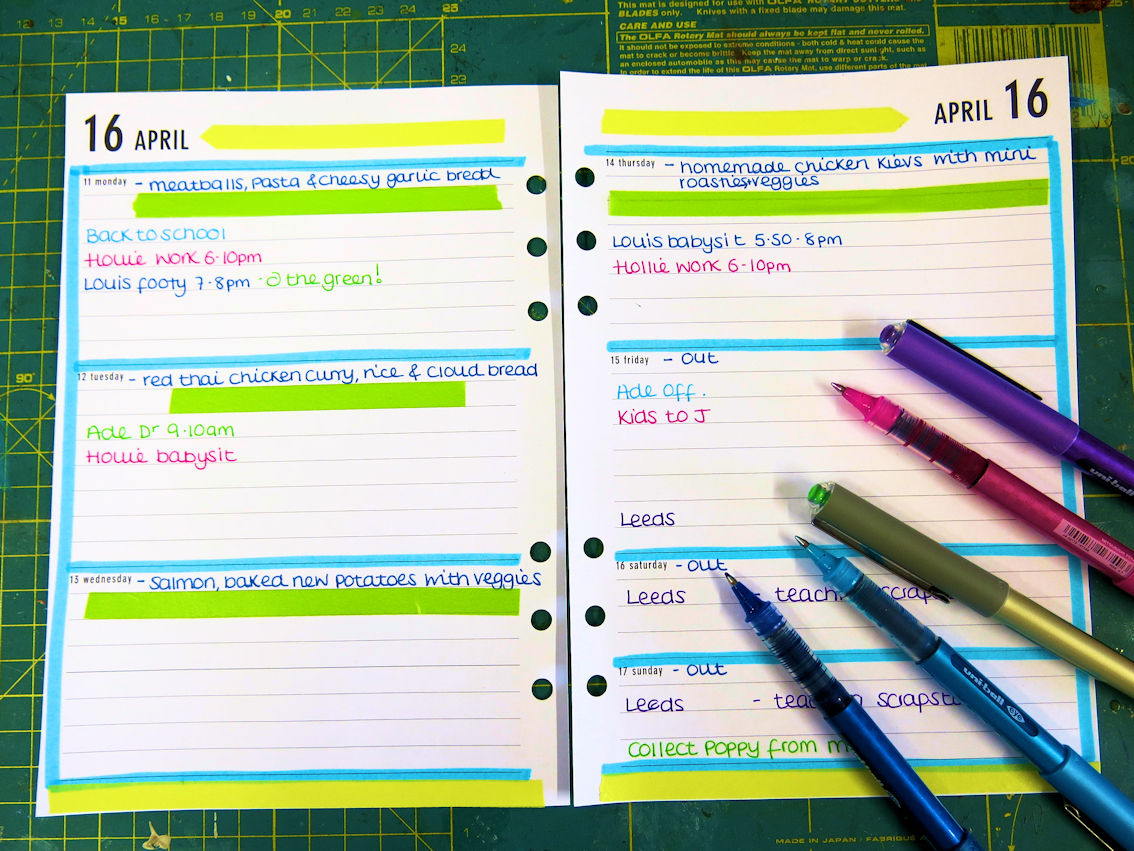 This mat is designed for use with OLFA ROTARY CUTTERS
BLADES only. Knives with a fixed blade may damage this mat.
CARE AND USE
The OLFA Rotary Mat should always be kept flat and never rolled.
It should not be exposed to extreme conditions - both cold & heat could cause the
mat to crack or become brittle. Keep the mat away from direct sunlight, such as
an enclosed automobile as this may cause the mat to warp or crack.
In order to extend the life of this OLFA Rotary Mat, use different parts of the mat
15 20
24
23
90°
16 APRIL
11 monday - meatballs, pasta & cheesy garlic bread
Back to school
Hollie work 6-10pm
Louis footy 7-8pm - @ the green!
12 tuesday - red thai chicken curry, rice & cloud bread
Ade Dr 9.10am
Hollie babysit
13 wednesday - salmon, baked new potatoes with veggies
APRIL 16
14 thursday - homemade chicken kievs with mini
roasties, veggies
Louis babysit 5.50-8pm
Hollie work 6-10pm
15 friday - out
Ade Off.
Kids to J
Leeds
16 saturday - out
Leeds - teach scrap
17 sunday - out
Leeds - scrapst
Collect Poppy from m
uni-ball
uni-ball eye
1
MADE IN JAPAN / FABRIQUE A